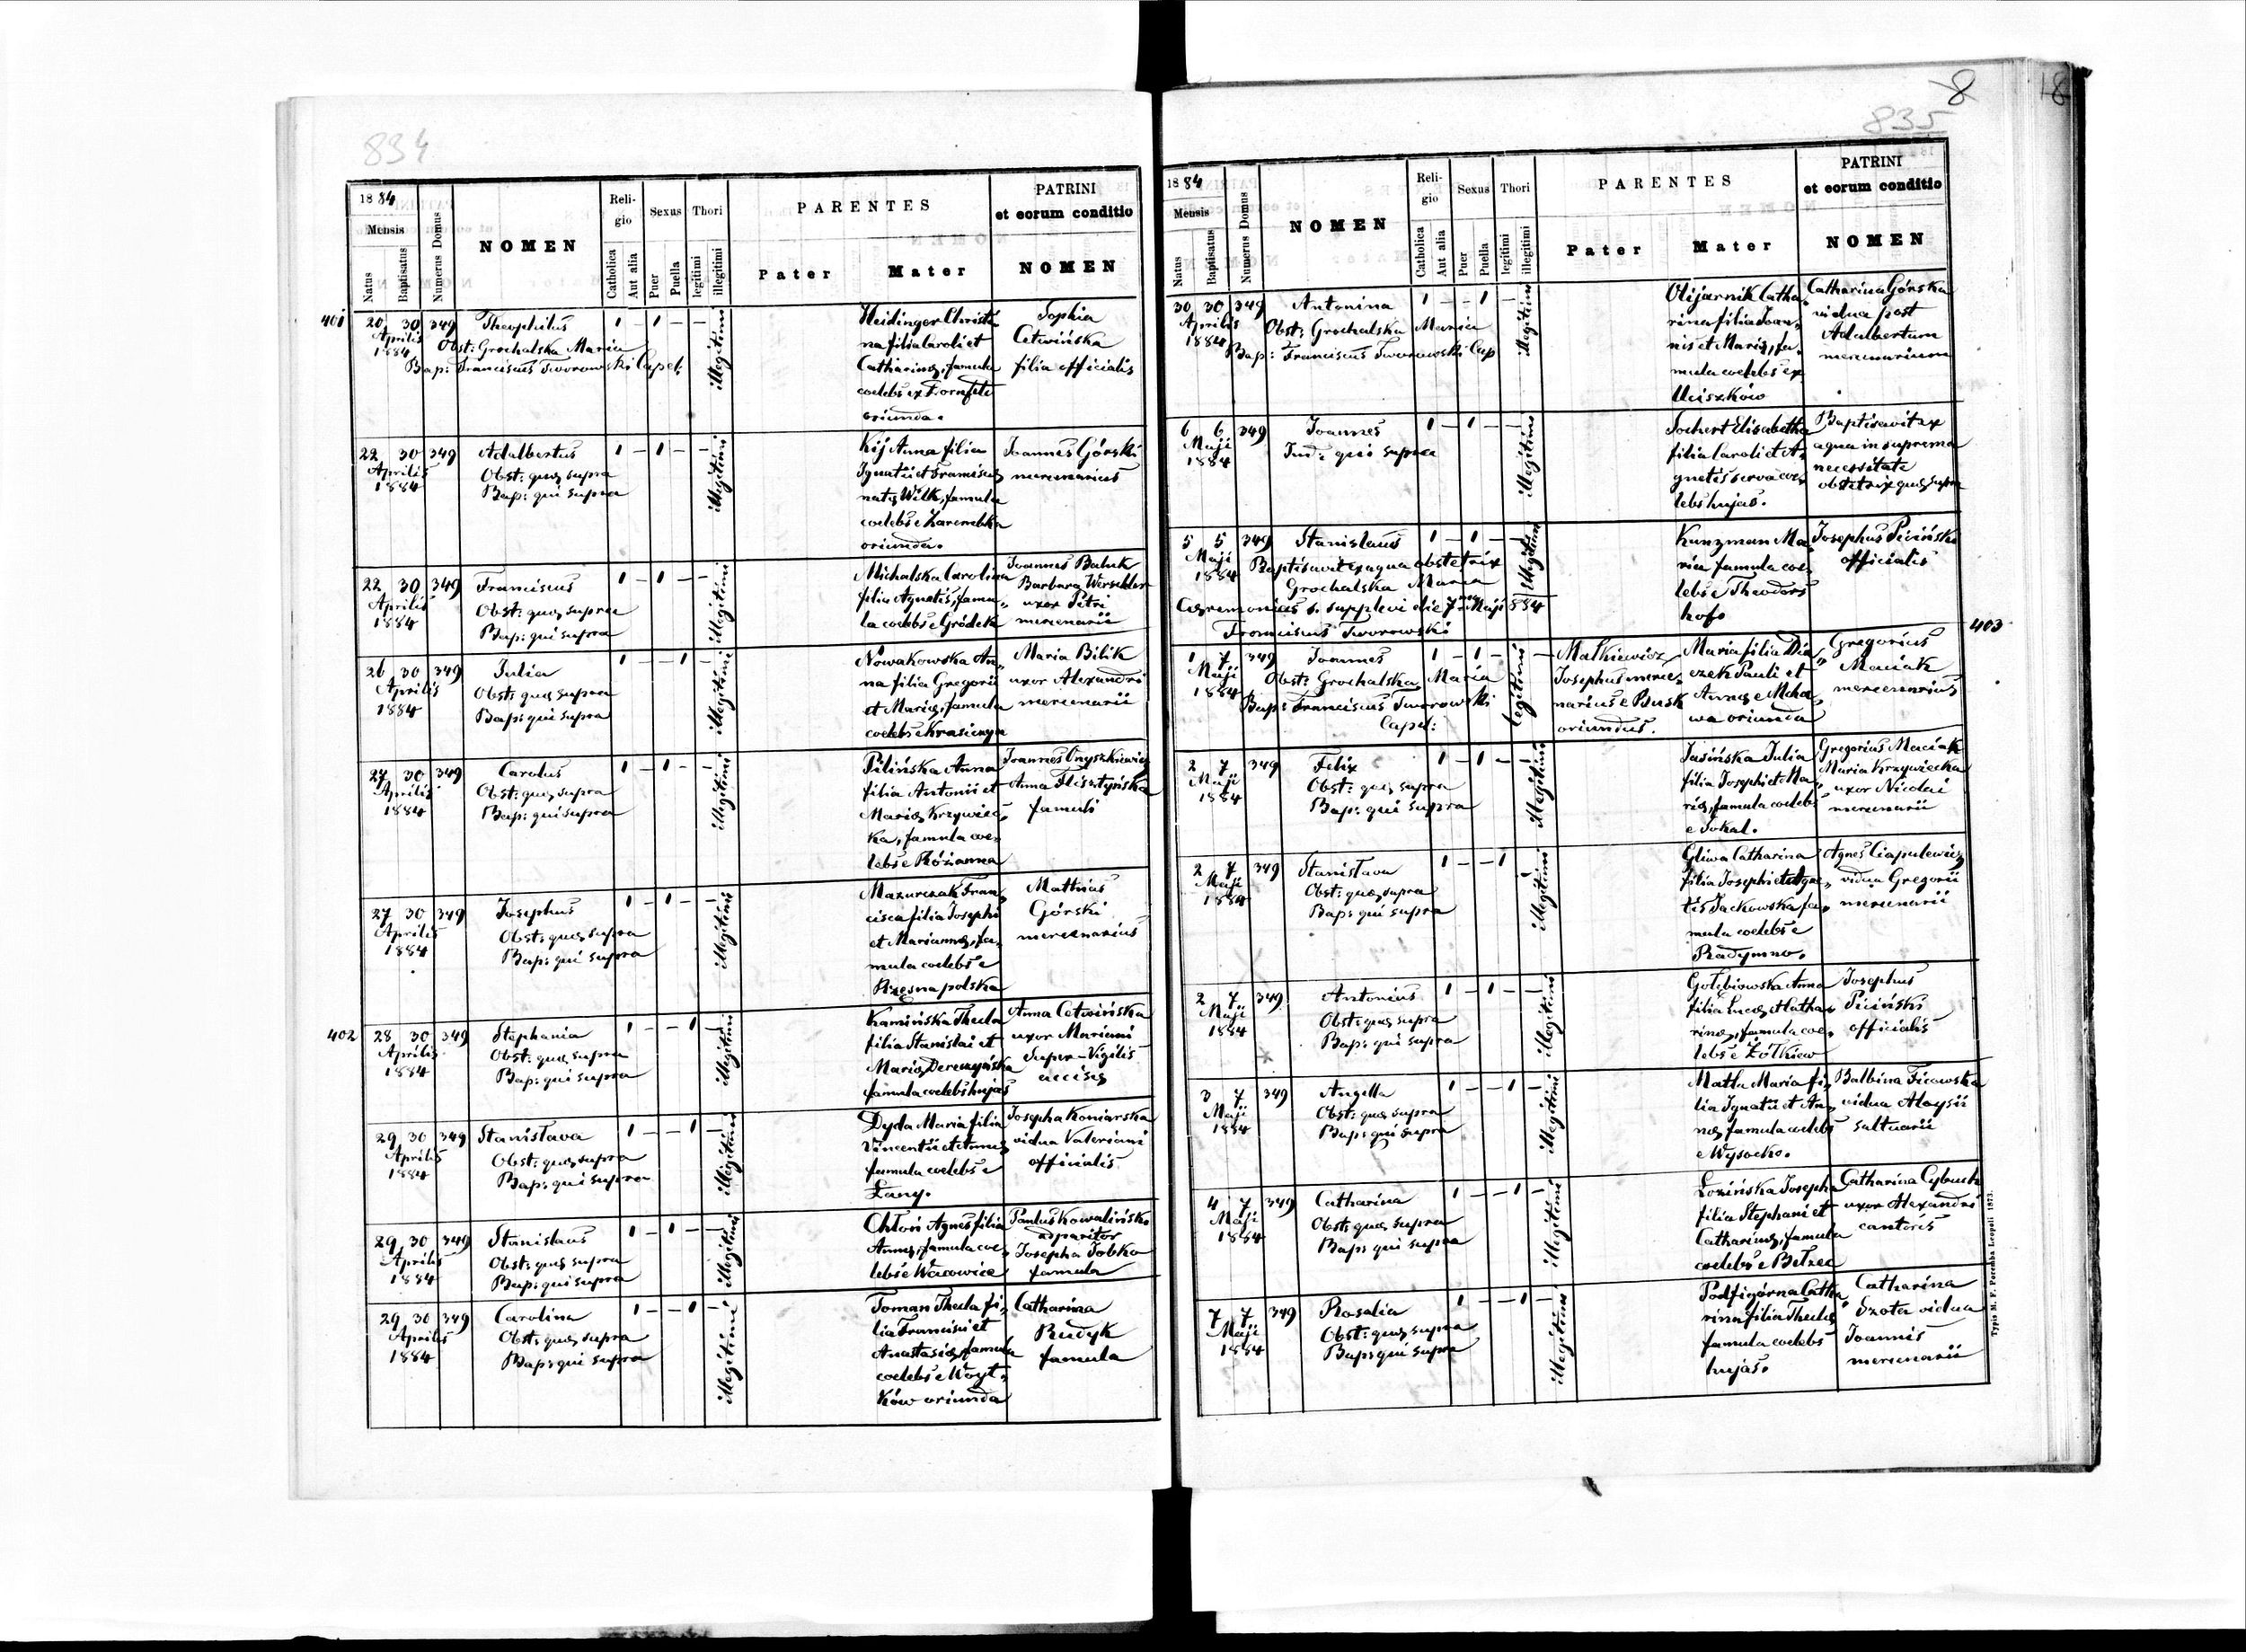 834
1884
Mensis
Natus
Baptisatus
Numerus Domus
NOMEN
Reli-
gio
Catholica
Aut alia
Sexus
Puer
Puella
Thori
legitimi
illegitimi
PARENTES
Pater
Mater
PATRINI
et eorum conditio
NOMEN
401
20 30 349 Theophilus 1 – 1 – –
Aprilis
1884
Obst: Grochalska Maria
Bap: Franciscus Tworowski Capel:
illegitimi
Heidinger Christi
na filia Caroli et
Catharinæ, famula
coelebs ex Dornfeld
oriunda.
Sophia
Cetwińska
filia officialis
22 30 349 Adalbertus 1 – 1 – –
Aprilis
1884
Obst: quæ supra
Bap: qui supra
illegitimi
Kij Anna filia
Ignatii et Franciscæ
natæ Wilk, famula
coelebs e Zarembka
oriunda.
Joannes Górski
mercenarius
22 30 349 Franciscus 1 – 1 – –
Aprilis
1884
Obst: quæ supra
Bap: qui supra
illegitimi
Michalska Carolina
filia Agnetis, famu„
la coelebs e Gródek
Joannes Baluk
Barbara Werschler
uxor Petri
mercenarii
26 30 349 Julia 1 – – 1 –
Aprilis
1884
Obst: quæ supra
Bap: qui supra
illegitimi
Nowakowska An„
na filia Gregorii
et Mariæ, famula
coelebs e Krasiczyn
Maria Bilik
uxor Alexandri
mercenarii
27 30 349 Carolus 1 – 1 – –
Aprilis
1884
Obst: quæ supra
Bap: qui supra
illegitimi
Pilińska Anna
filia Antonii et
Mariæ Krzywiec„
ka, famula coe„
lebs e Rózanna
Joannes Onyszkiewicz
Anna Flisztyńska
famuli
27 30 349 Josephus 1 – 1 – –
Aprilis
1884
Obst: quæ supra
Bap: qui supra
illegitimi
Mazurczak Fran„
cisca filia Josephi
et Mariannæ, fa„
mula coelebs e
Rzęsna polska
Mathias
Górski
mercenarius
402
28 30 349 Stephania 1 – – 1 –
Aprilis
1884
Obst: quæ supra
Bap: qui supra
illegitimi
Kamińska Thecla
filia Stanislai et
Mariæ Dereczyńska
famula coelebs hujas
Anna Cetwińska
uxor Mariani
Super-Vigilis
accisæ
29 30 349 Stanisłava 1 – – 1 –
Aprilis
1884
Obst: quæ supra
Bap: qui supra
illegitimi
Dyda Maria filia
Vincentii et Annæ
famula coelebs e
Łany.
Josepha Koniarska
vidua Valeriani
officialis
29 30 349 Stanislaus 1 – 1 – –
Aprilis
1884
Obst: quæ supra
Bap: qui supra
illegitimi
Chłoń Agnes filia
Annæ, famula coe„
lebs e Wacowice
Paulus Kowaliński
adparitor
Josepha Sobko
famula
29 30 349 Carolina 1 – – 1 –
Aprilis
1884
Obst: quæ supra
Bap: qui supra
illegitimi
Toman Thecla fi„
lia Francisci et
Anastasiæ, famula
coelebs e Woyt„
ków oriunda
Catharina
Rudyk
famula
8
18
835
1884
Mensis
Natus
Baptisatus
Numerus Domus
NOMEN
Reli-
gio
Catholica
Aut alia
Sexus
Puer
Puella
Thori
legitimi
illegitimi
PARENTES
Pater
Mater
PATRINI
et eorum conditio
NOMEN
30 30 349 Antonina 1 – – 1 –
Aprilis
1884
Obst: Grochalska Maria
Bap: Franciscus Tworowski Cap
illegitimi
Olijarnik Catha„
rina filia Joan„
nis et Mariæ, fa„
mula coelebs ex
Uciszków
Catharina Górska
vidua post
Adalbertum
mercenarium
6 6 349 Joannes 1 – 1 – –
Maji
1884
Ind: qui supra
illegitimi
Sochert Elisabetha
filia Caroli et A„
gnetis serva coe„
lebs hujas.
Baptisavit ex
aqua in suprema
necessitate
obstetrix quæ supra
5 5 349 Stanislaus 1 – 1 – –
Maji
1884
Baptisavit ex aqua obstetrix
Grochalska Maria
Cæremonias s. supplevi die 7ma Maji 884
Franciscus Tworowski
illegitimi
Kunzman Ma„
ria famula coe„
lebs e Theodors
hofs
Josephus Piciński
officialis
403
1 7 349 Joannes 1 – 1 – –
Maji
1884
Obst: Grochalska Maria
Bap: Franciscus Tworowski
Capel:
legitimi
Malkiewicz
Josephus merce„
narius e Busk
oriundus.
Maria filia Dia„
czek Pauli et
Annæ e Mcha
wa oriunda
Gregorius
Maciak
mercenarius
2 7 349 Felix 1 – 1 – –
Maji
1884
Obst: quæ supra
Bap: qui supra
illegitimi
Jasińska Julia
filia Josephi et Ma„
riæ, famula coelebs
e Sokal.
Gregorius Maciak
Maria Krzywiecka
uxor Nicolai
mercenarii
2 7 349 Stanisłava 1 – – 1
Maji
1884
Obst: quæ supra
Bap: qui supra
illegitimi
Gliwa Catharina
filia Josephi et Agne„
tis Jackowska fa„
mula coelebs e
Radymno.
Agnes Ciapulewicz
vidua Gregorii
mercenarii
2 7 349 Antonius 1 – 1 – –
Maji
1884
Obst: quæ supra
Bap: qui supra
illegitimi
Gołębiowska Anna
filia Lucæ et Catha„
rinæ, famula coe„
lebs e Żółkiew
Josephus
Piciński
officialis
3 7 349 Angella 1 – – 1 –
Maji
1884
Obst: quæ supra
Bap: qui supra
illegitimi
Matla Maria fi„
lia Ignatii et An„
næ, famula coelebs
e Wysocko.
Balbina Ficowska
vidua Aloysii
saltuarii
4 7 349 Catharina 1 – – 1 –
Maji
1884
Obst: quæ supra
Bap: qui supra
illegitimi
Lozińska Josepha
filia Stephani et
Catharinæ, famula
coelebs e Bełzec
Catharina Cybuch
uxor Alexandri
cantoris
7 7 349 Rosalia 1 – – 1 –
Maji
1884
Obst: quæ supra
Bap: qui supra
illegitimi
Podfigórna Catha„
rina filia Theclæ
famula coelebs
hujas.
Catharina
Szota vidua
Joannis
mercenarii
Typis M. F. Poremba Leopoli 1873.